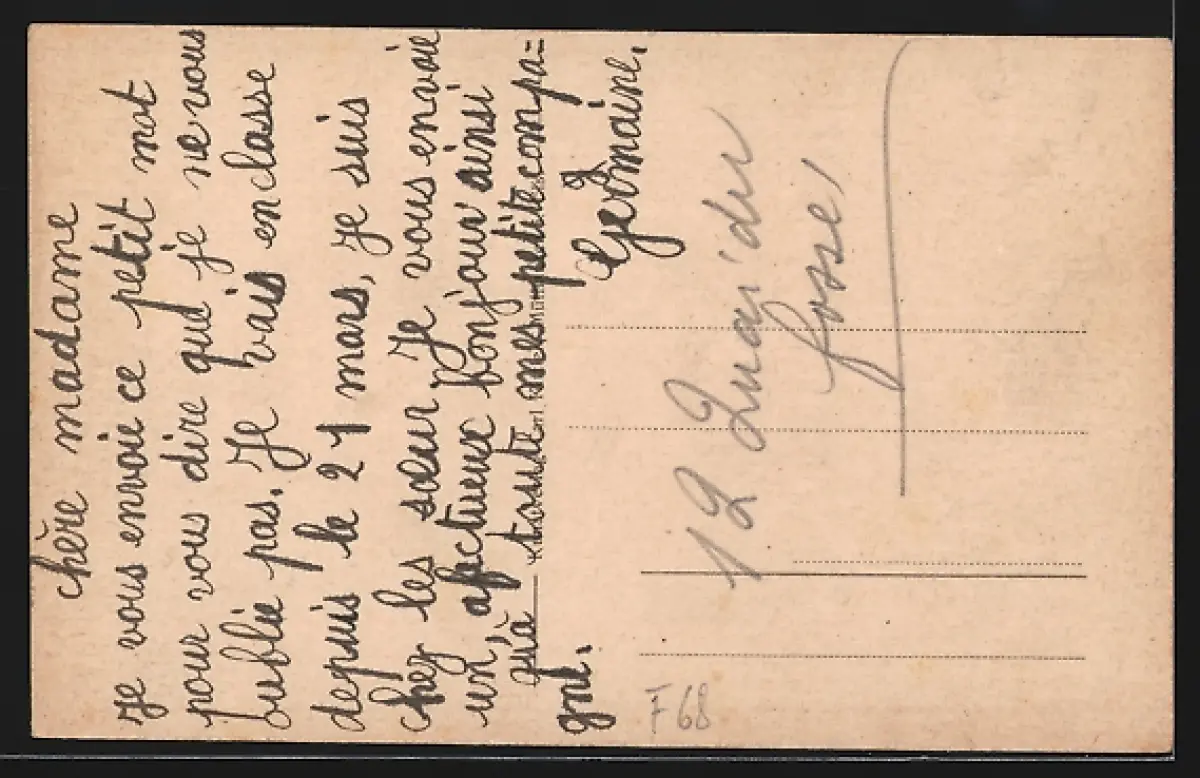 chère madame
je vous envoie ce petit mot
pour vous dire que je ne vous
oublie pas. Je vais en classe
depuis le 21 mars, je suis
chez les sœur Je vous envoie
un, afectueux bonjour ainsi
qu'a toute mes petite compa=
gne.
Germaine.
12 Quai du
fosse
F68